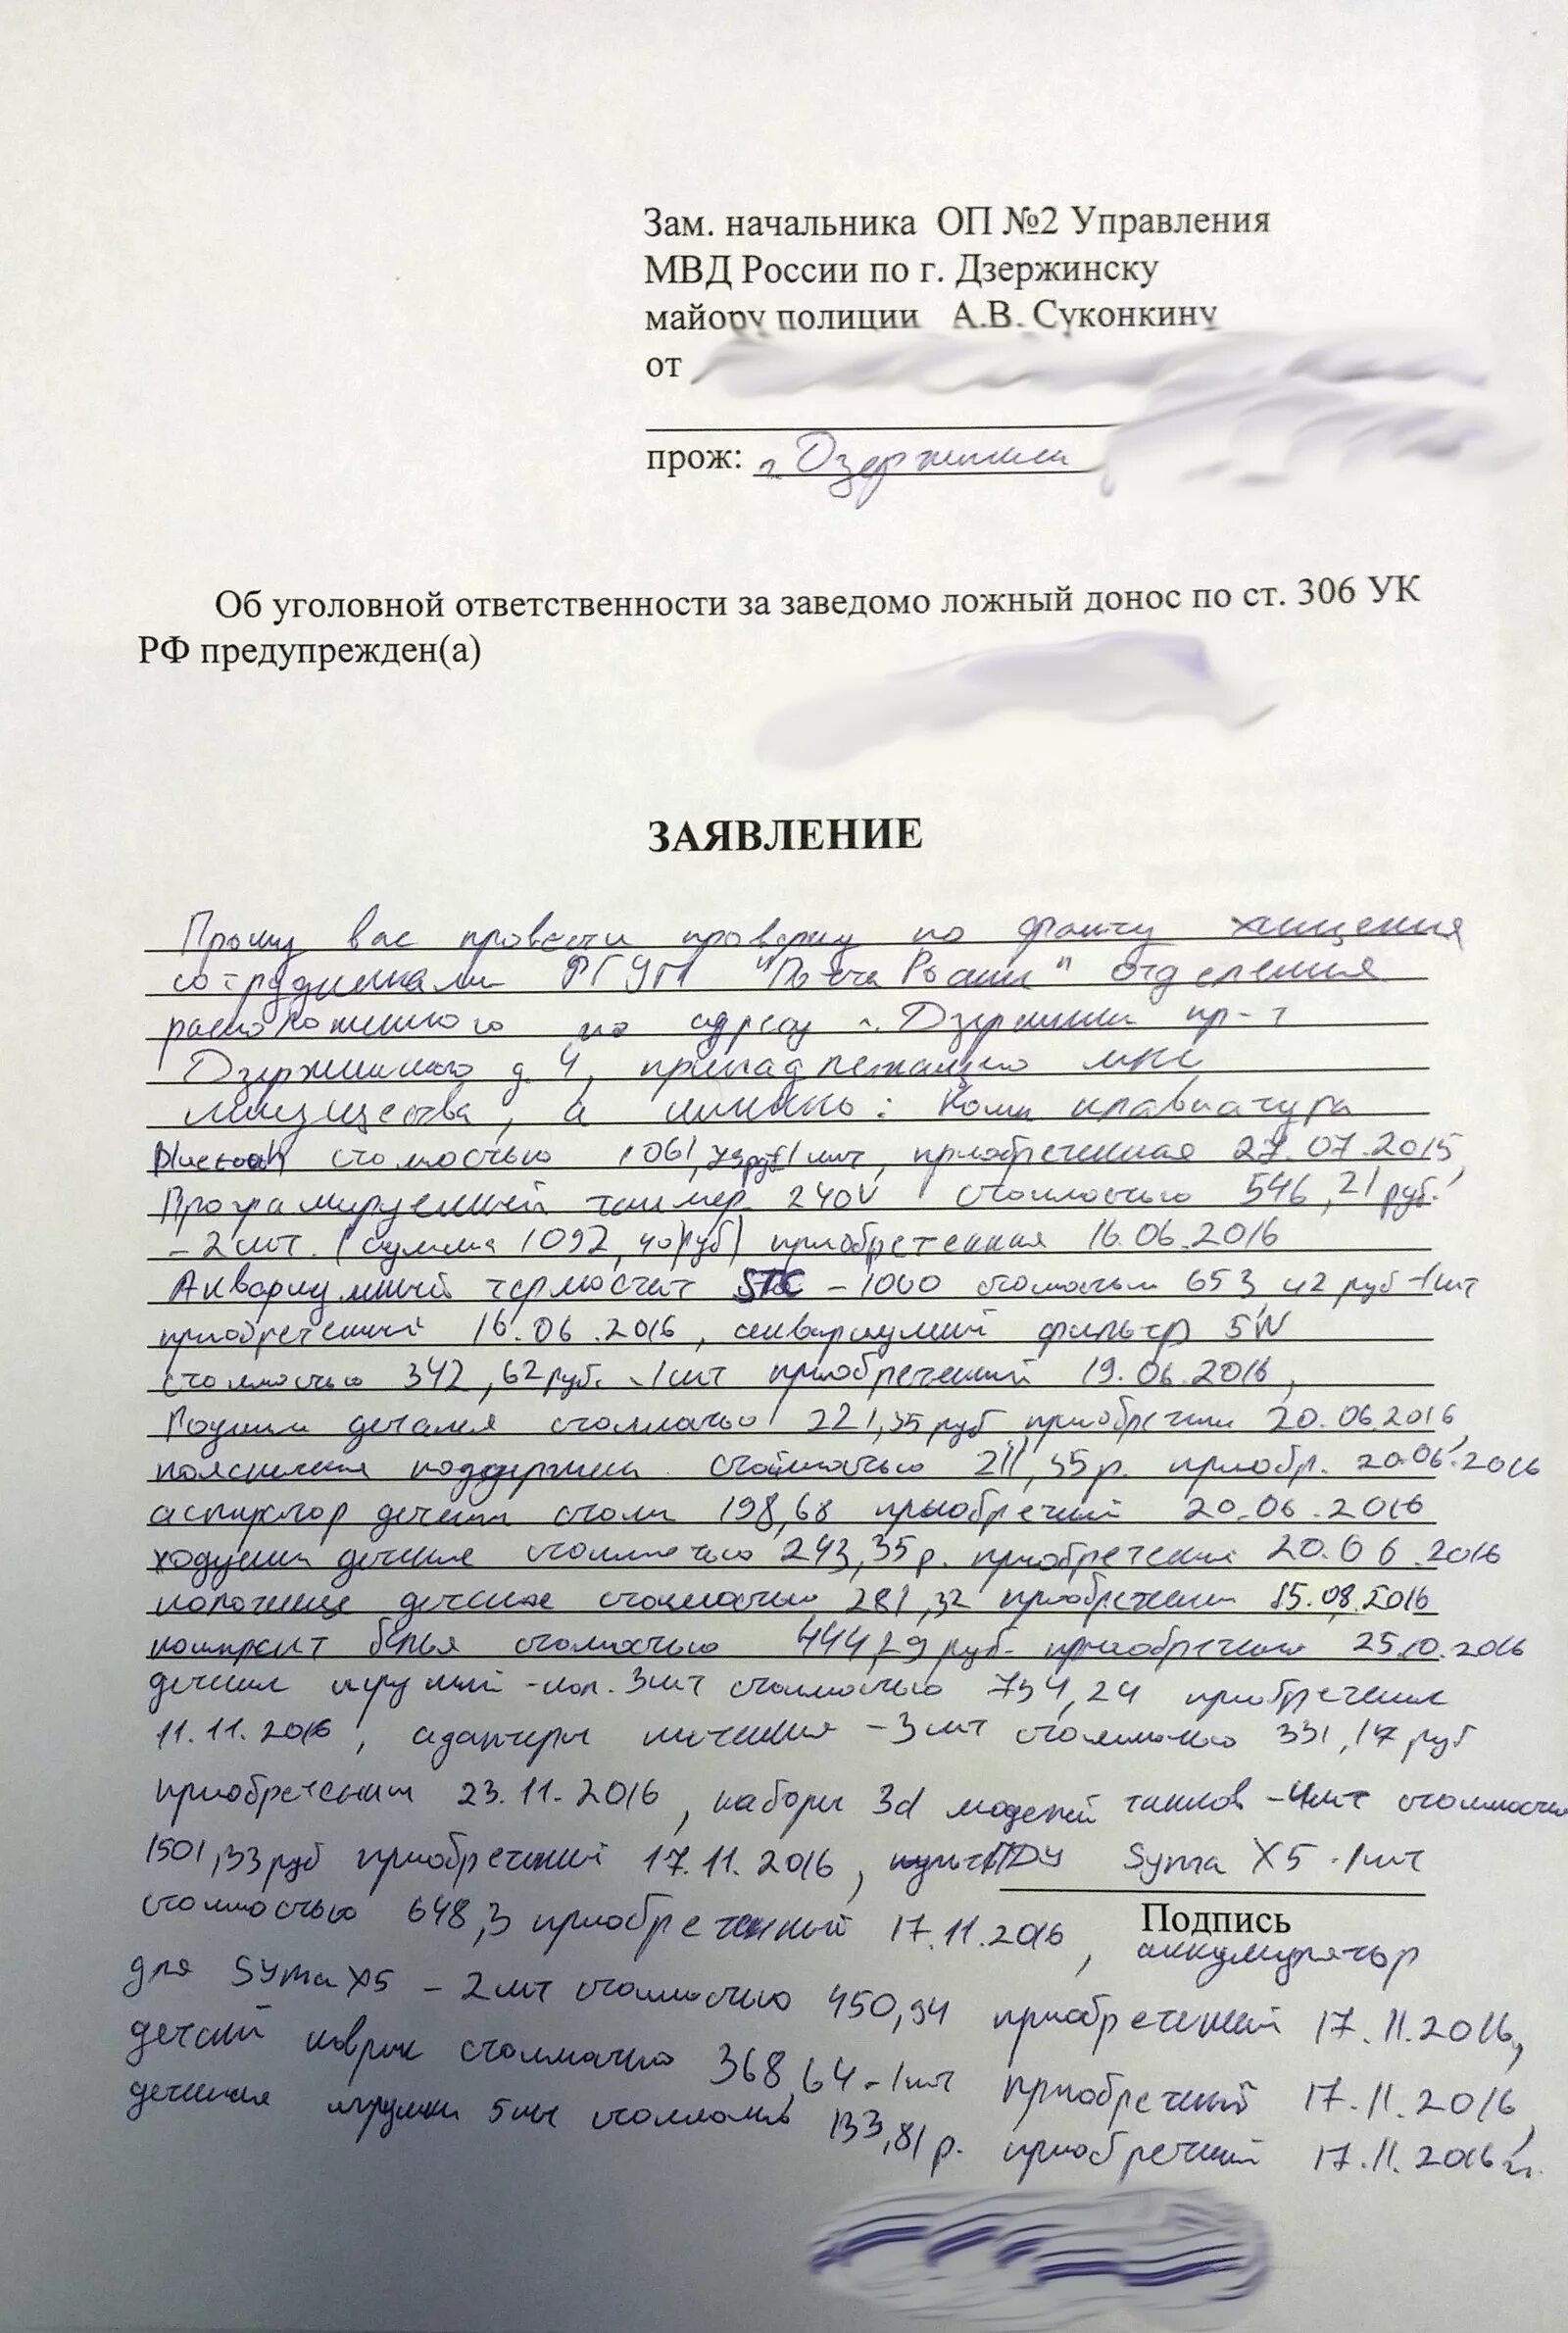 Зам. начальника ОП №2 Управления
МВД России по г. Дзержинску
майору полиции А.В. Суконкину
от
прож: г. Дзержинск
Об уголовной ответственности за заведомо ложный донос по ст. 306 УК
РФ предупрежден(а)
ЗАЯВЛЕНИЕ
Прошу вас провести проверку по факту хищения
сотрудниками ФГУП "Почта России" отделения
расположенного по адресу г. Дзержинск пр-т
Дзержинского д. 4, принадлежащего мне
имущества, а именно: Комп клавиатура
bluetooth стоимостью 1061,79руб 1 шт, приобретенная 27.07.2015,
Програмируемый таймер 240V стоимостью 546,21 руб.
- 2 шт. (сумма 1092,40руб) приобретенная 16.06.2016
Аквариумный термостат STC - 1000 стоимостью 653,42 руб - 1 шт
приобретенный 16.06.2016, аквариумный фильтр 5W
стоимостью 342,62 руб. - 1шт приобретенный 19.06.2016,
стоимостью 221,35 руб приобретен 20.06.2016,
поддержка стоимостью 211,35 р. приобр. 20.06.2016
аспиратор детский стоим 198,68 приобретений 20.06.2016
ходунки детские стоимостью 243,35 р. приобретений 20.06.2016
полотенце детское стоимостью 281,32 приобретен 15.08.2016
комплект белья стоимостью 444,29 руб. приобретено 25.10.2016
детских игрушки - кол. 3шт стоимостью 754,24 приобретения
11.11.2016, адаптеры питания - 3 шт стоимостью 331,17 руб
приобретении 23.11.2016, наборы 3d моделей танков - 4шт стоимостью
1501,33 руб приобретений 17.11.2016, ПДУ Syma X5 - 1 шт
Подпись
стоимостью 648,3 приобретенный 17.11.2016, аккумулятор
для Syma X5 - 2 шт стоимостью 450,94 приобретений 17.11.2016,
детский коврик стоимостью 368,64 - 1 шт приобретений 17.11.2016,
детская игрушки 5шт стоимость 133,81 р. приобретений 17.11.2016 г.